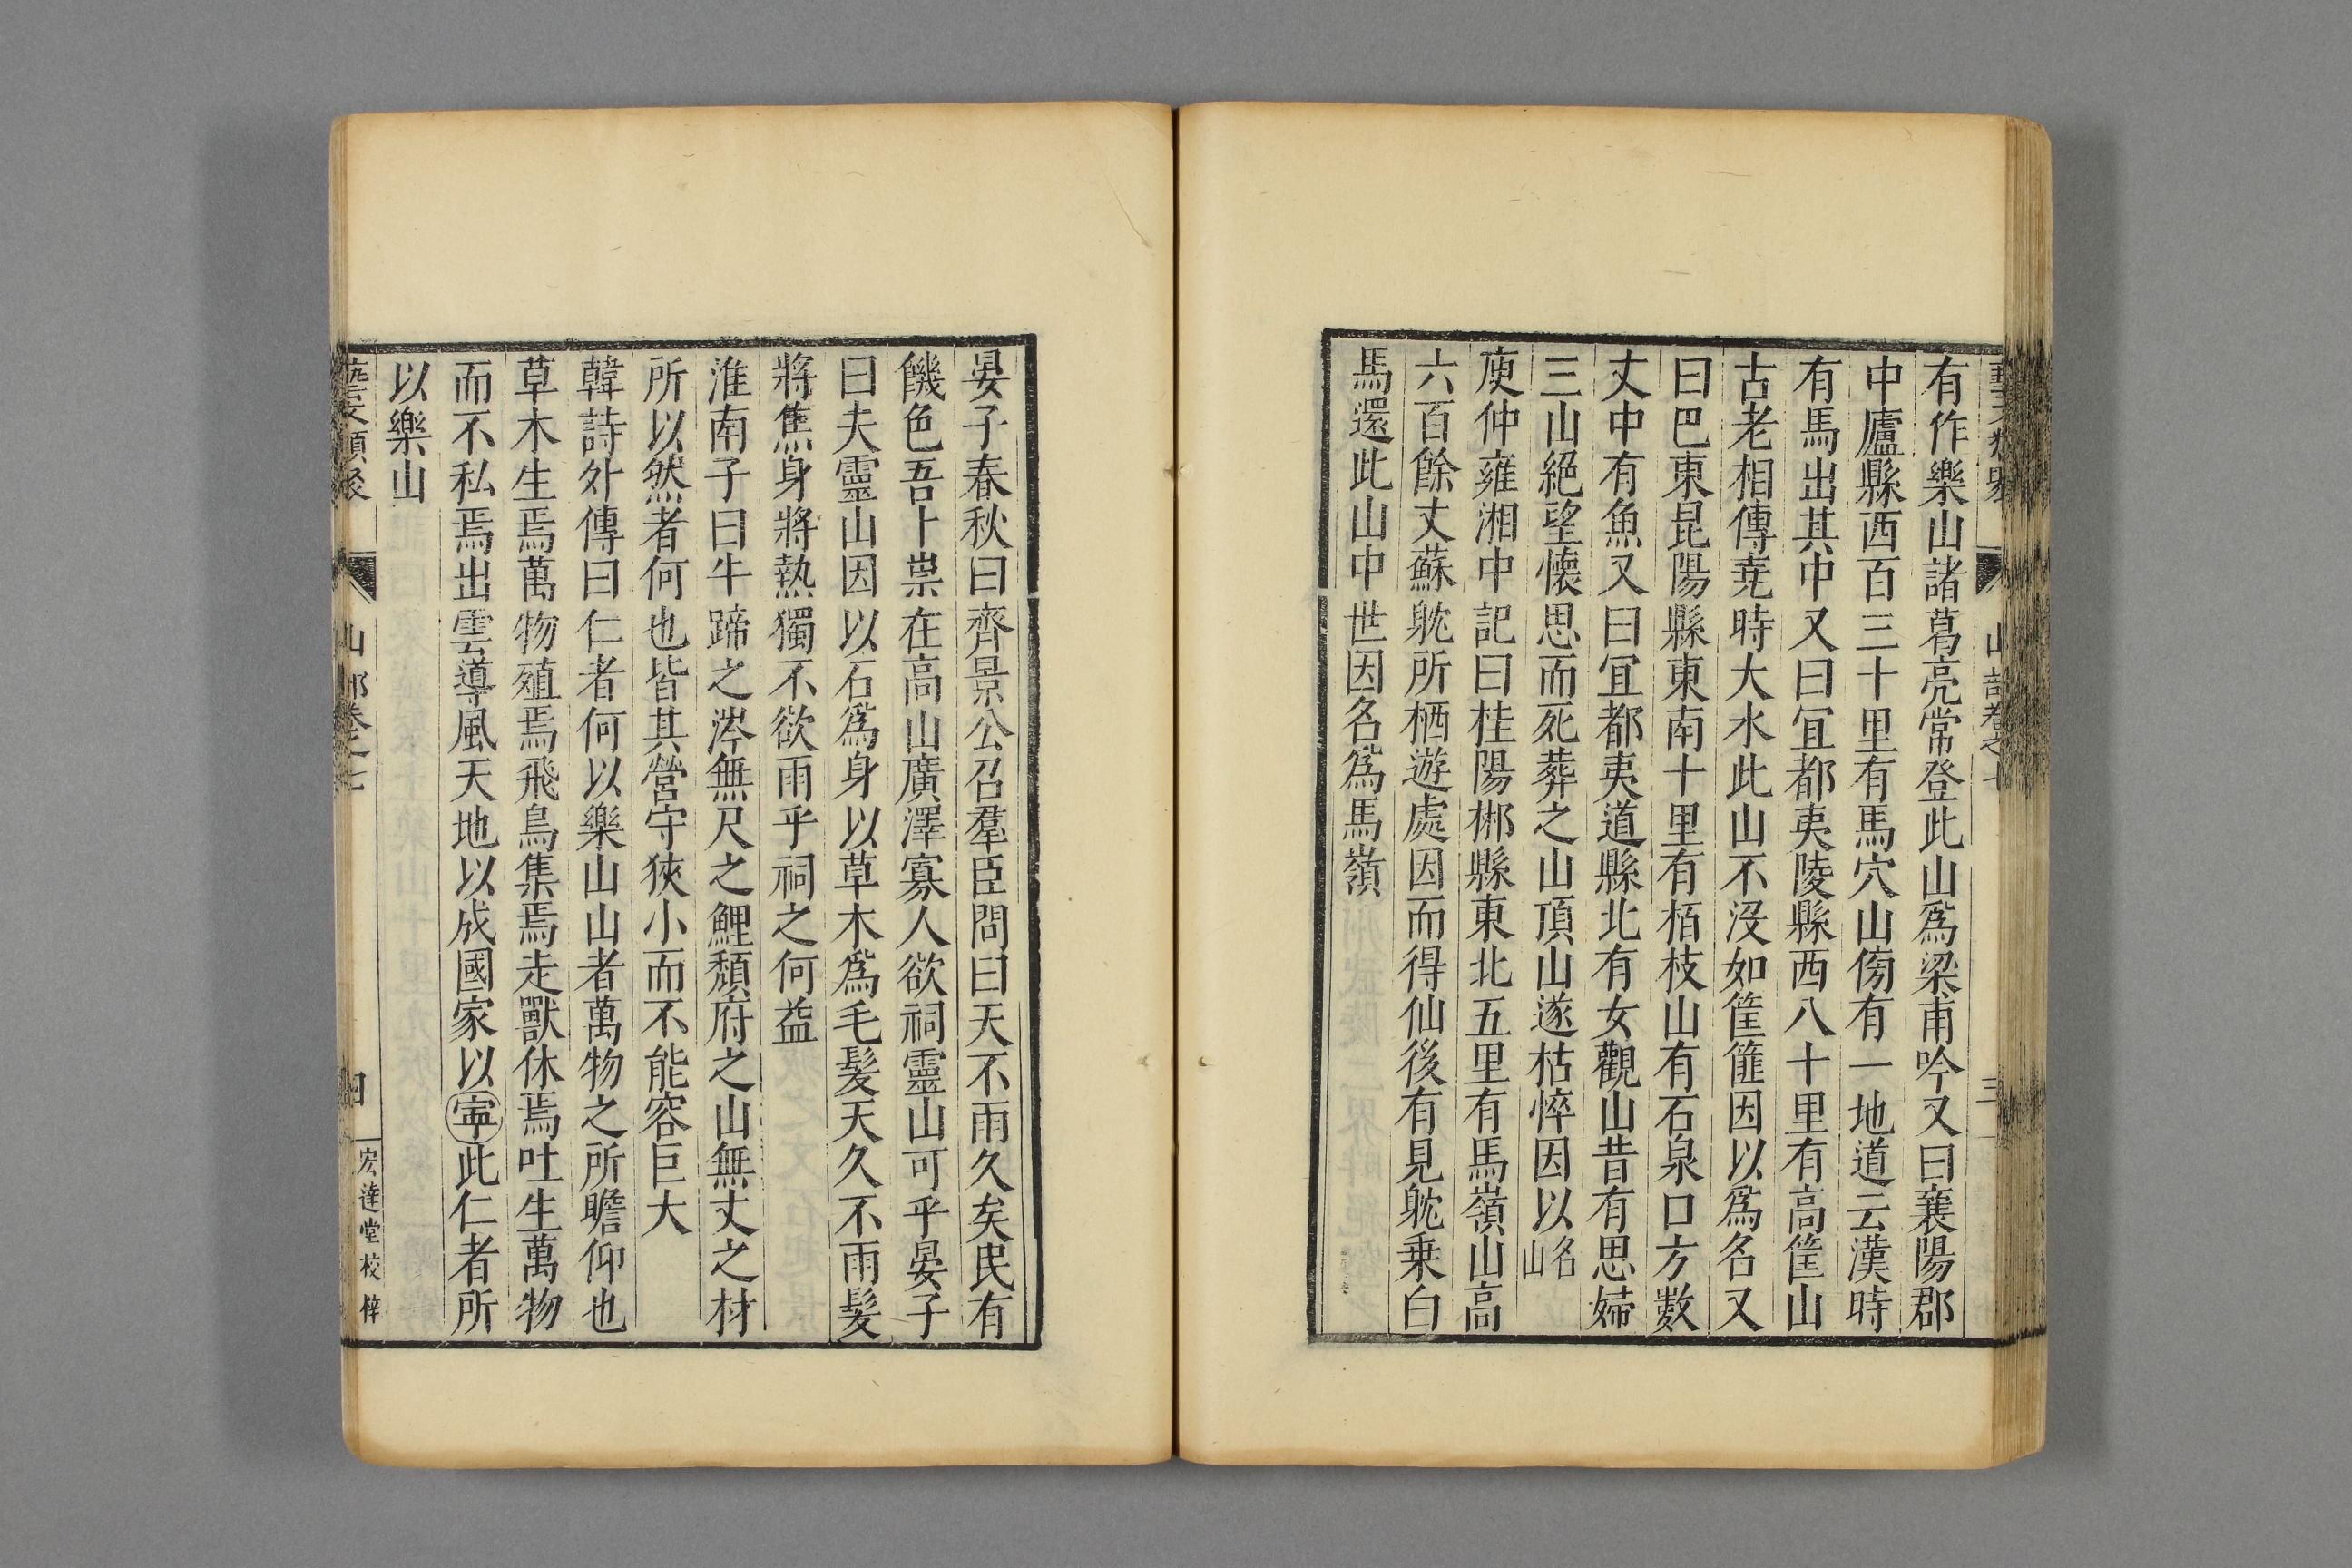 有作樂山諸葛亮常登此山爲梁甫吟又曰襄陽郡
中廬縣西百三十里有馬穴山傍有一地道云漢時
有馬出其中又曰宜都夷陵縣西八十里有高筐山
古老相傳堯時大水此山不沒如筐篚因以爲名又
曰巴東昆陽縣東南十里有栢枝山有石泉口方數
丈中有魚又曰宜都夷道縣北有女觀山昔有思婦
三山絕望懷思而死葬之山頂山遂枯悴因以名山
庾仲雍湘中記曰桂陽郴縣東北五里有馬嶺山高
六百餘丈蘇躭所栖遊處因而得仙後有見躭乗白
馬還此山中世因名爲馬嶺
晏子春秋曰齊景公召羣臣問曰天不雨久矣民有
饑色吾卜祟在高山廣澤寡人欲祠靈山可乎晏子
曰夫靈山因以石爲身以草木爲毛髮天久不雨髮
將焦身將熱獨不欲雨乎祠之何益
淮南子曰牛蹄之涔無尺之鯉頹府之山無丈之材
所以然者何也皆其營守狹小而不能容巨大
韓詩外傳曰仁者何以樂山山者萬物之所瞻仰也
草木生焉萬物殖焉飛鳥集焉走獸休焉吐生萬物
而不私焉出雲導風天地以成國家以寧此仁者所
以樂山
藝文類聚 山部卷之七 四 宏達堂校梓